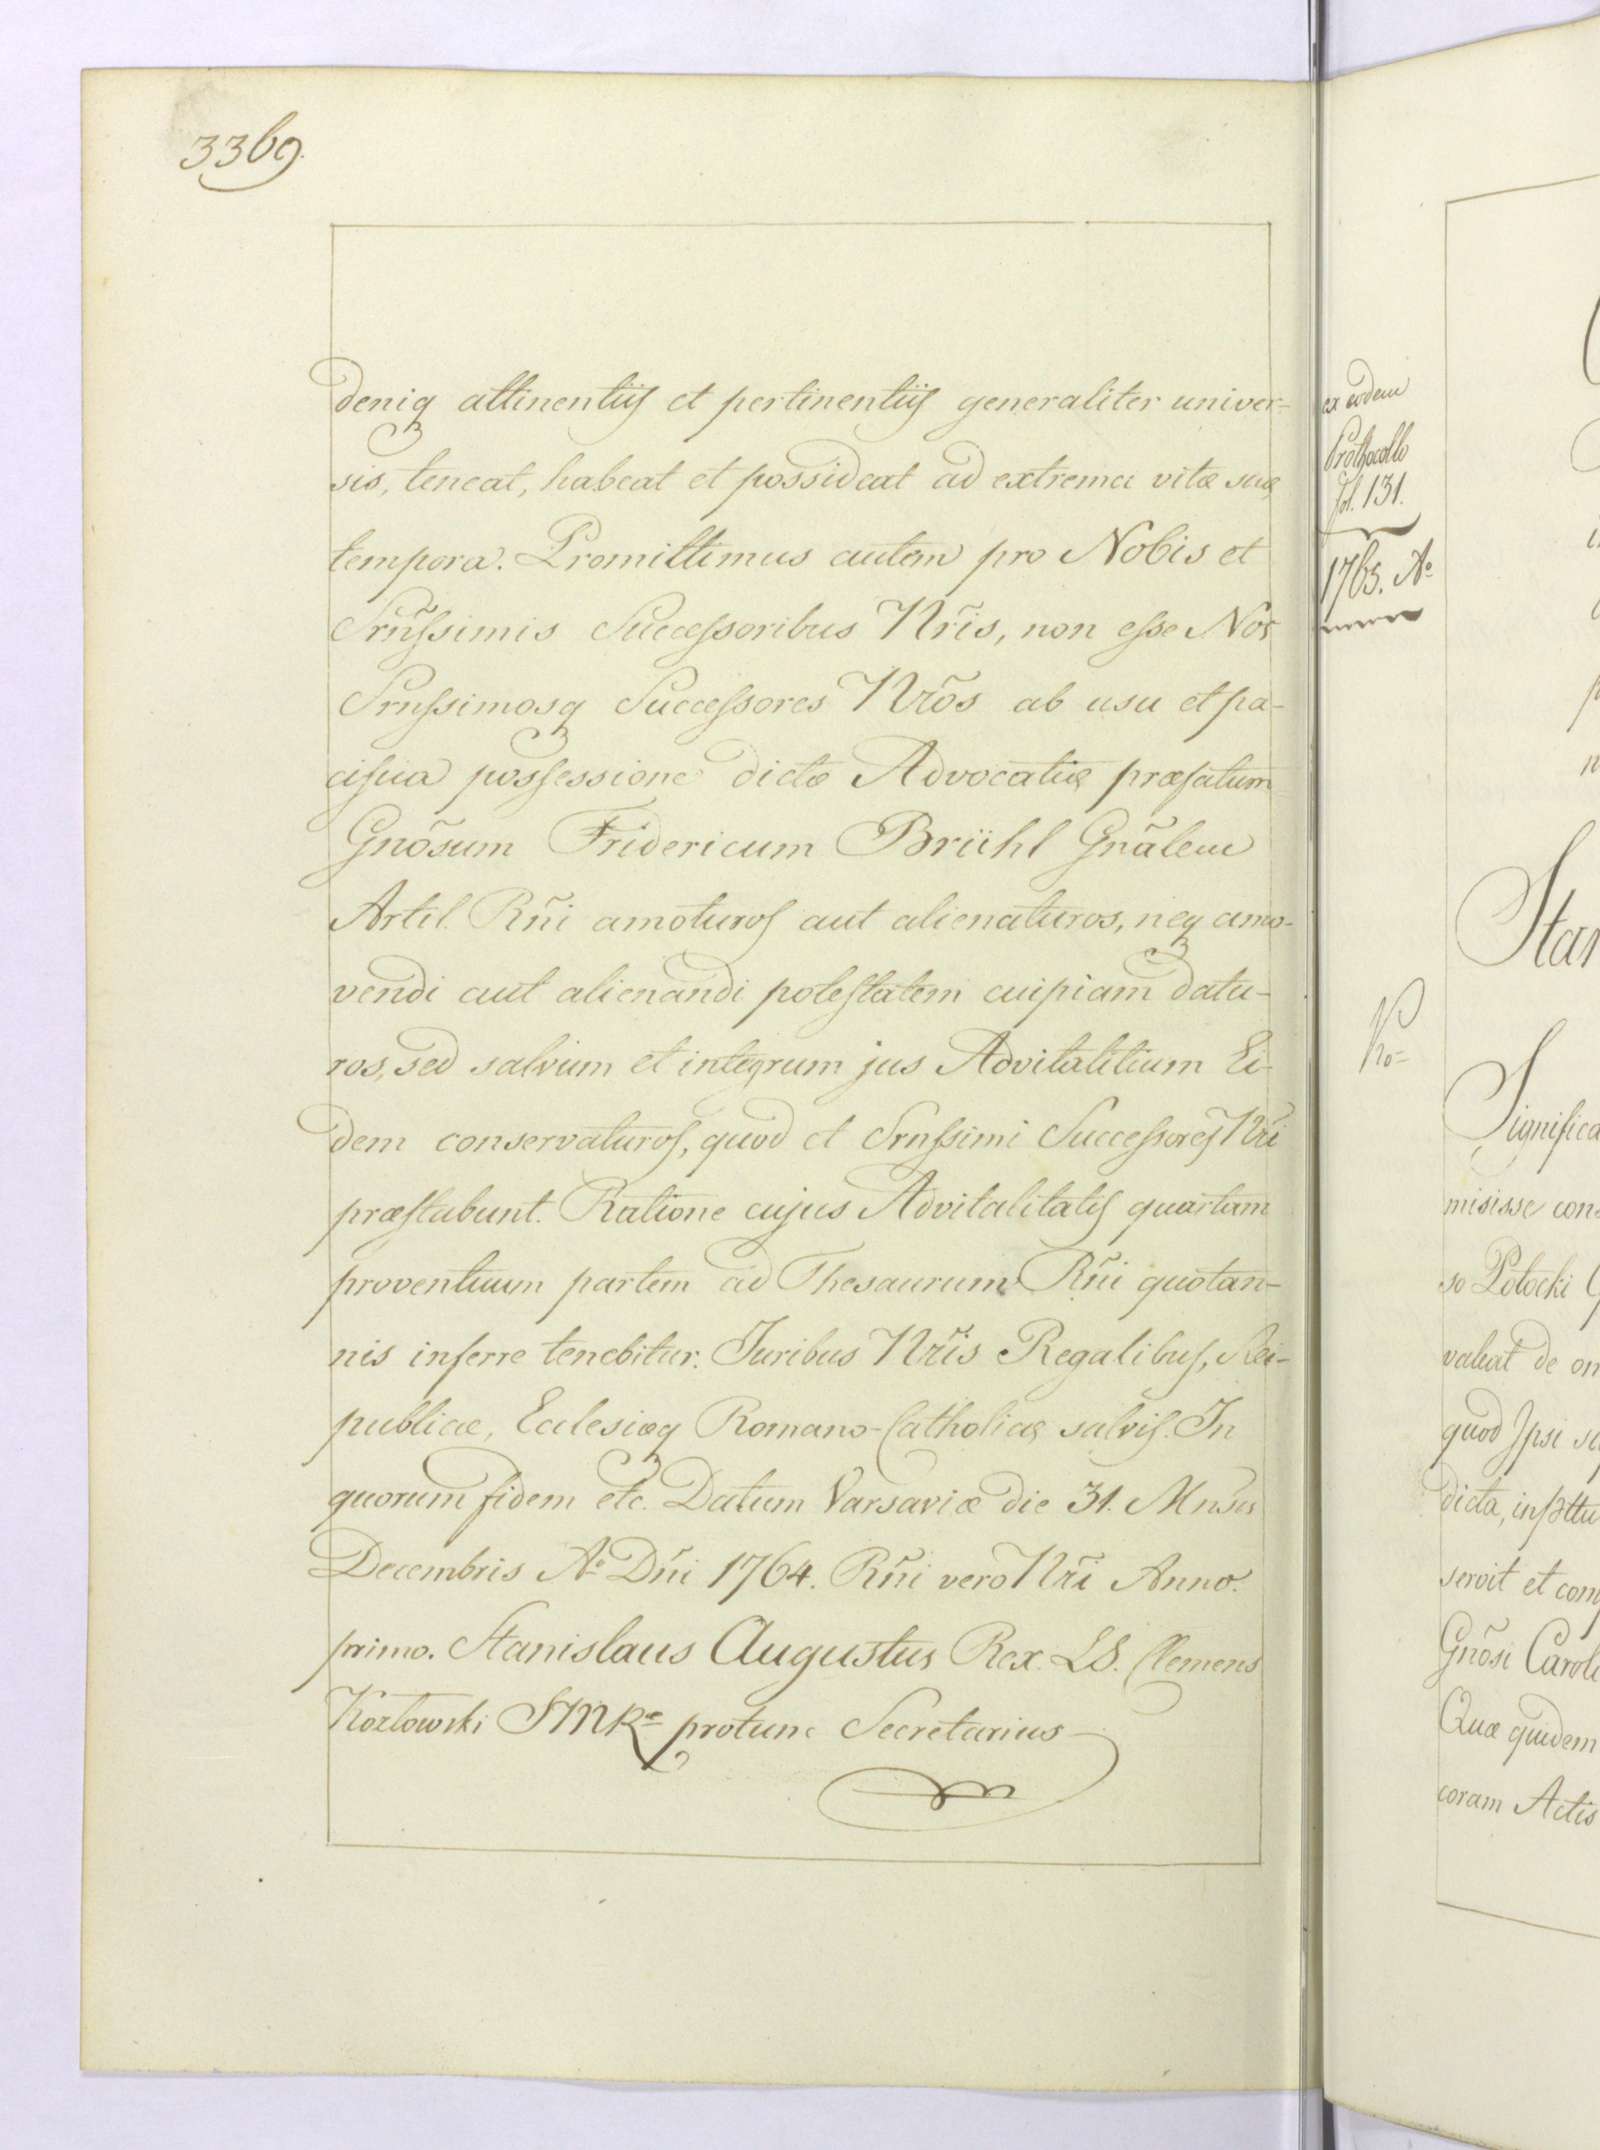 3369.
deniq attinentiis et pertinentiis generaliter univer=
sis, teneat, habeat et possideat ad extrema vitæ suæ
tempora. Promittimus autem pro Nobis et
Srñssimis Successoribus Nr̃is, non esse Nos
Srnssimosq Successores Nr̃os ab usu et pa-
cifica possessione dictæ Advocatiæ præfatum
Gnõsum Fridericum Brühl Gnãlem
Artil. Rñi amoturos aut alienaturos, neq amo-
vendi aut alienandi potestatem cuipiam datu-
ros, sed salvum et integrum jus Advitalitium Ei-
dem conservaturos, quod et Srnssimi Successores Nr̃i
præstabunt. Ratione cujus Advitalitatis quartam
proventuum partem ad Thesaurum Rñi quotan-
nis inferre tenebitur. Juribus Nr̃is Regalibus, Rei-
publicæ, Ecclesiæq Romano-Catholicæ salvis. In
quorum fidem etc. Datum Varsaviæ die 31. Mnsis
Decembris Aº Dñi 1764. Rñi vero Nr̃i Anno.
primo. Stanislaus Augustus Rex. LS. Clemens
Kozłowski SMRæ protunc Secretarius
ex eodem
Prothocollo
fol. 131.
1765. Aº
Star
Significa
misisse cons
so Potocki G
valeat de om
quod Ipsi su
dicta,
servit et com
Gnõsi Caroli
Quæ quidem
coram Actis